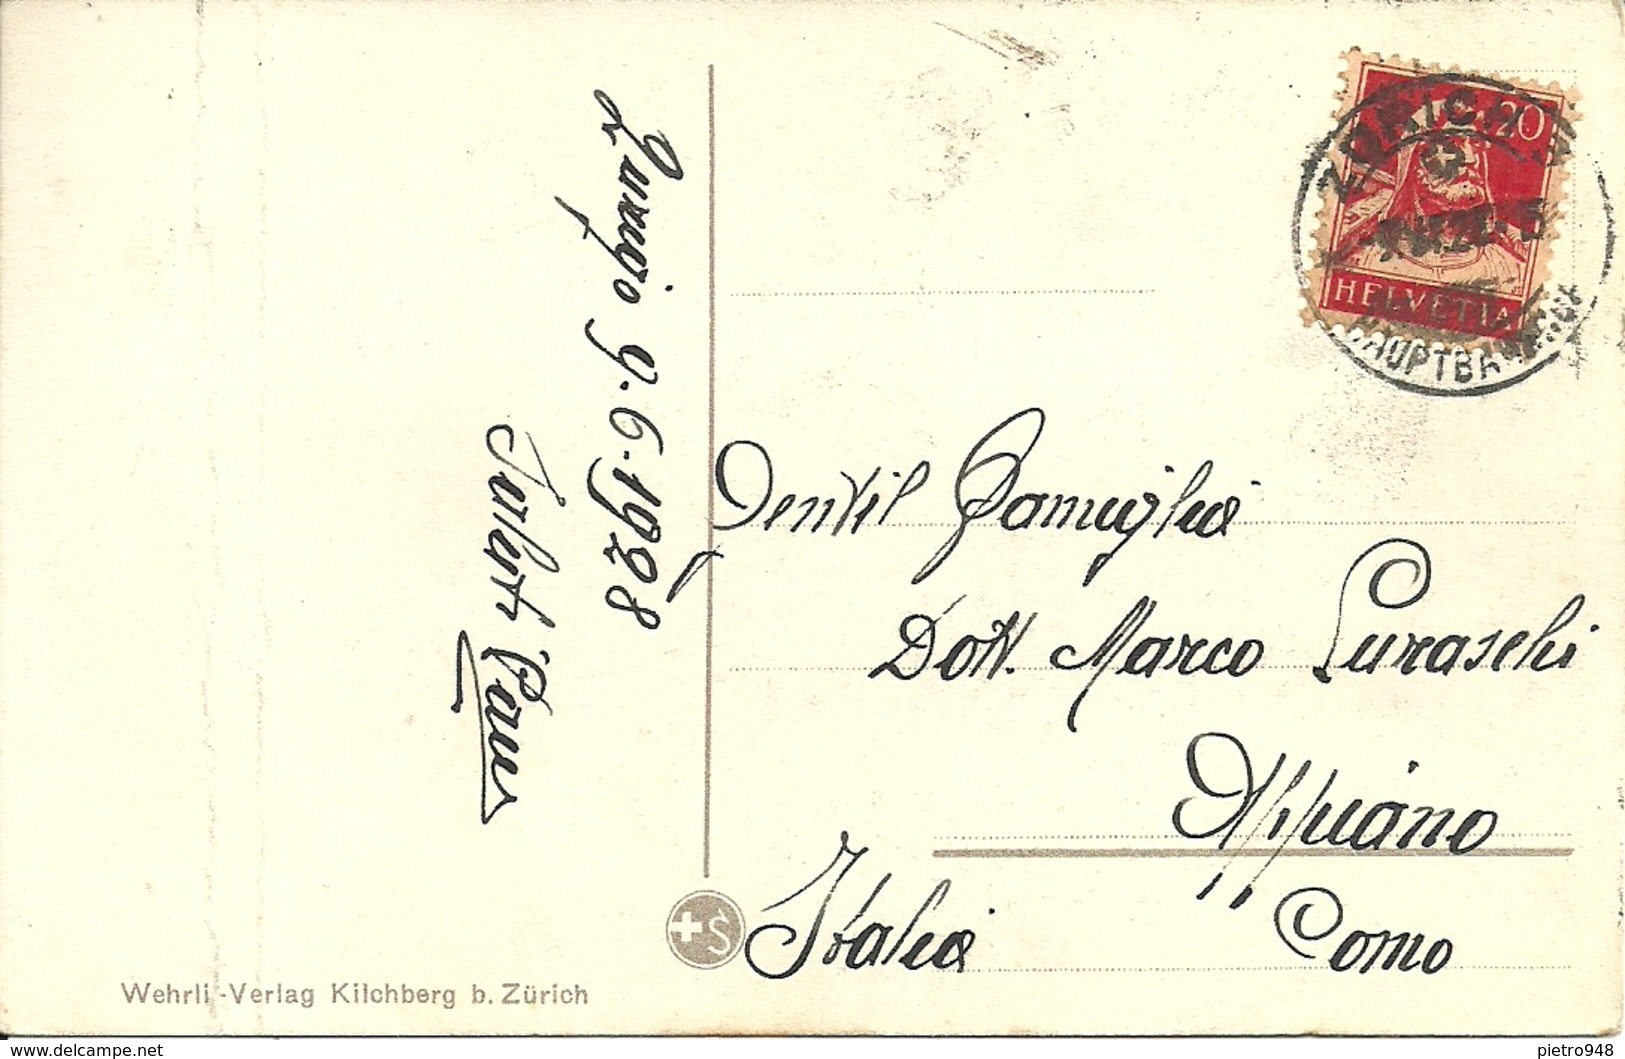 Zurigo 9.6.1928
ZÜRICH
20
HELVETIA
HAUPTBAHNHOF
Gentil Famiglia
Dott. Marco Luraschi
Appiano
Como
Italia
+S
Wehrli-Verlag Kilchberg b. Zürich
delcampe.net
pietro948